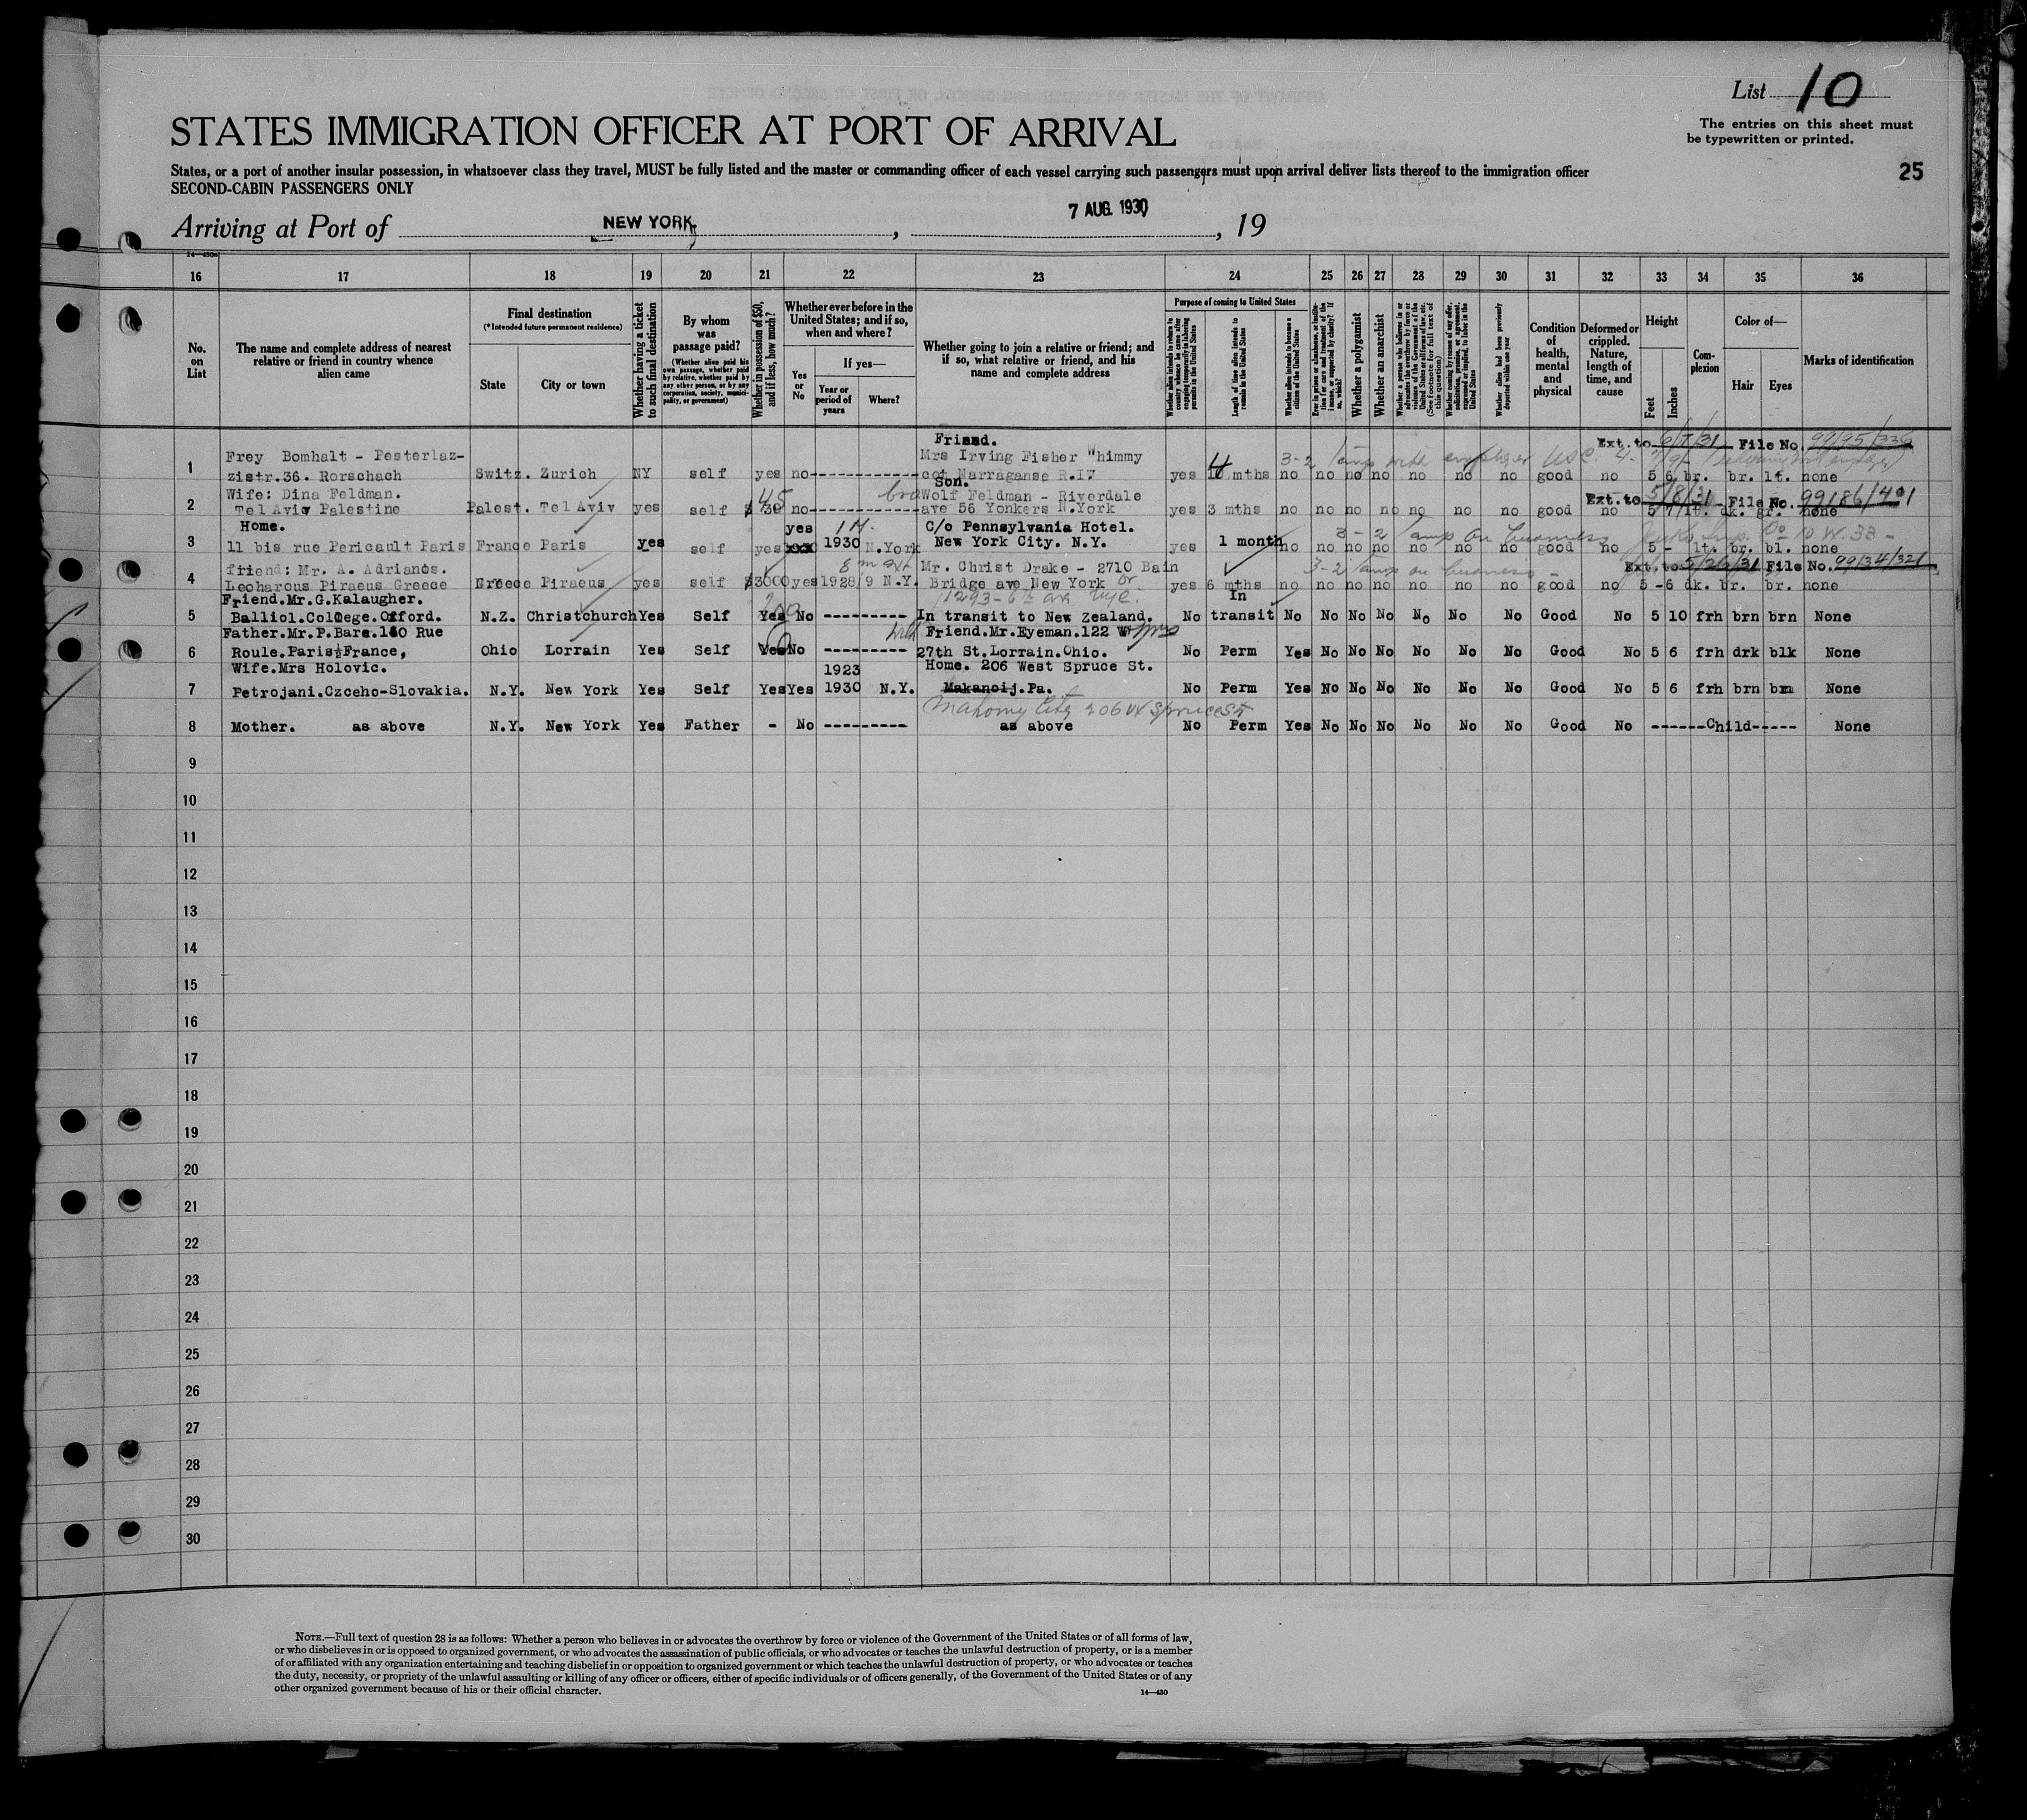 List 10
The entries on this sheet must
be typewritten or printed.
STATES IMMIGRATION OFFICER AT PORT OF ARRIVAL
25
States, or a port of another insular possession, in whatsoever class they travel, MUST be fully listed and the master or commanding officer of each vessel carrying such passengers must upon arrival deliver lists thereof to the immigration officer
SECOND-CABIN PASSENGERS ONLY
Arriving at Port of NEW YORK, 7 AUG. 1930, 19
14—430a
16 17 18 19 20 21 22 23 24 25 26 27 28 29 30 31 32 33 34 35 36
No. on List
The name and complete address of nearest relative or friend in country whence alien came
Final destination
(*Intended future permanent residence)
State
City or town
Whether having a ticket to such final destination
By whom was passage paid?
(Whether alien paid his own passage, whether paid by relative, whether paid by any other person, or by any corporation, society, municipality, or government)
Whether in possession of $50, and if less, how much?
Whether ever before in the United States; and if so, when and where?
Yes or No
If yes—
Year or period of years
Where?
Whether going to join a relative or friend; and if so, what relative or friend, and his name and complete address
Purpose of coming to United States
Length of time alien intends to remain in the United States
Whether alien intends to become a citizen of the United States
Whether a polygamist
Whether an anarchist
Condition of health, mental and physical
Deformed or crippled. Nature, length of time, and cause
Height
Feet
Inches
Complexion
Color of—
Hair
Eyes
Marks of identification
Friend. Ext. to 6/7/31 File No. 99/95/336
1 Frey Bomhalt - Pesterlaz- Mrs Irving Fisher "himmy
zistr.36. Rorschach Switz. Zurich NY self yes no---------- cot Narraganse R.I yes mths no no no no no no no good no 5 6 br. br. lt. none
Wife: Dina Feldman. 45 Son. Wolf Feldman - Riverdale Ext. to 5/8/31 File No. 99186/401
2 Tel Aviv Palestine Palest. Tel Aviv yes self $ 30 no---------- ave 56 Yonkers N.York yes 3 mths no no no no no no no good no 5 lt. dk. gr. none
Home. yes C/o Pennsylvania Hotel.
3 11 bis rue Pericault Paris France Paris yes self yes 1930 N.York New York City. N.Y. yes 1 month no no no no no no no good no 5 - lt. br. bl. none
friend: Mr. A. Adrianos. Mr. Christ Drake - 2710 Bain Ext. to 5/26/31 File No. 99134/321
4 Leoharous Piraeus Greece Greece Piraeus yes self $3000 yes 1928/9 N.Y. Bridge ave New York yes 6 mths no no no no no no no good no 5 -6 dk. br. br. none
Friend.Mr.G.Kalaugher. In
5 Balliol.College.Offord. N.Z. Christchurch Yes Self Yes No ---------- In transit to New Zealand. No transit No No No No No No No Good No 5 10 frh brn brn None
Father.Mr.P.Bare.140 Rue Friend.Mr.Eyeman.122 W
6 Roule.Paris France, Ohio Lorrain Yes Self Yes No ---------- 27th St.Lorrain.Ohio. No Perm Yes No No No No No No Good No 5 6 frh drk blk None
Wife.Mrs Holovic. 1923 Home. 206 West Spruce St.
7 Petrojani.Czoceho-Slovakia. N.Y. New York Yes Self Yes Yes 1930 N.Y. Makanoij.Pa. No Perm Yes No No No No No No Good No 5 6 frh brn brn None
Mahony City 206 W Spruce St
8 Mother. as above N.Y. New York Yes Father - No --------- as above No Perm Yes No No No No No No Good No ------Child----- None
9
10
11
12
13
14
15
16
17
18
19
20
21
22
23
24
25
26
27
28
29
30
NOTE.—Full text of question 28 is as follows: Whether a person who believes in or advocates the overthrow by force or violence of the Government of the United States or of all forms of law,
or who disbelieves in or is opposed to organized government, or who advocates the assassination of public officials, or who advocates or teaches the unlawful destruction of property, or is a member
of or affiliated with any organization entertaining and teaching disbelief in or opposition to organized government or which teaches the unlawful destruction of property, or who advocates or teaches
the duty, necessity, or propriety of the unlawful assaulting or killing of any officer or officers, either of specific individuals or of officers generally, of the Government of the United States or of any
other organized government because of his or their official character.
14—430